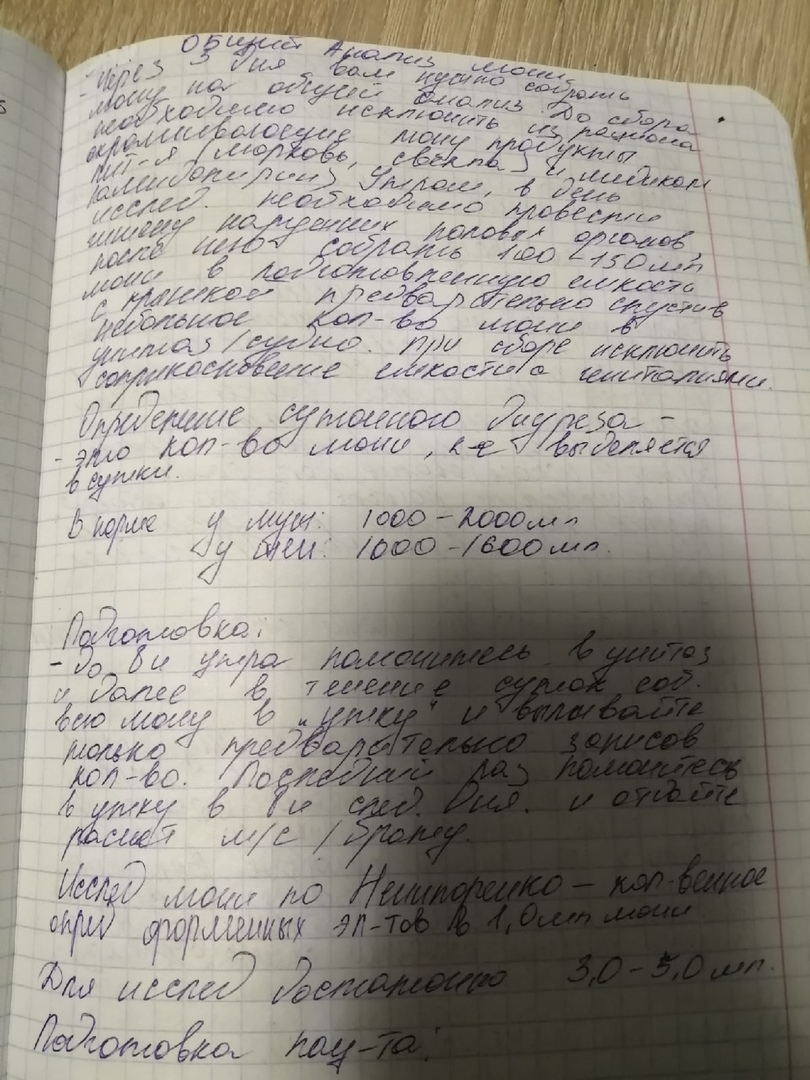 Общий Анализ мочи.
- Через 3 дня вам нужно собрать
мочу на общий анализ. До сбора
необходимо исключить из рациона
окрашивающие мочу продукты
пит-я (морковь, свекла) и
Утром, в день
исслед. необходимо провести
наружних половых органов,
после него собрать 100-150мл
мочи в подготовленную емкость
с крышкой предварительно спустив
небольшое кол-во мочи в
унитаз/судно. При сборе исключить
соприкосновение емкости с гениталиями.
Определение суточного диуреза -
- это кол-во мочи, к-е выделяется
в сутки.
В норме у муж: 1000-2000мл
у жен: 1000-1600мл.
Подготовка:
- До 8и утра помочитесь в унитаз
и далее в течение суток соб.
всю мочу в "утку" и выливайте
только предварительно записов
кол-во. Последний раз помочитесь
в утку в 8и след. дня. и отдайте
расчет м/с /врачу.
Исслед мочи по Нечипоренко - кол-венное
опред форменных эл-тов в 1,0мл мочи.
Для исслед достаточно 3,0-5,0мл.
Подготовка пац-та: